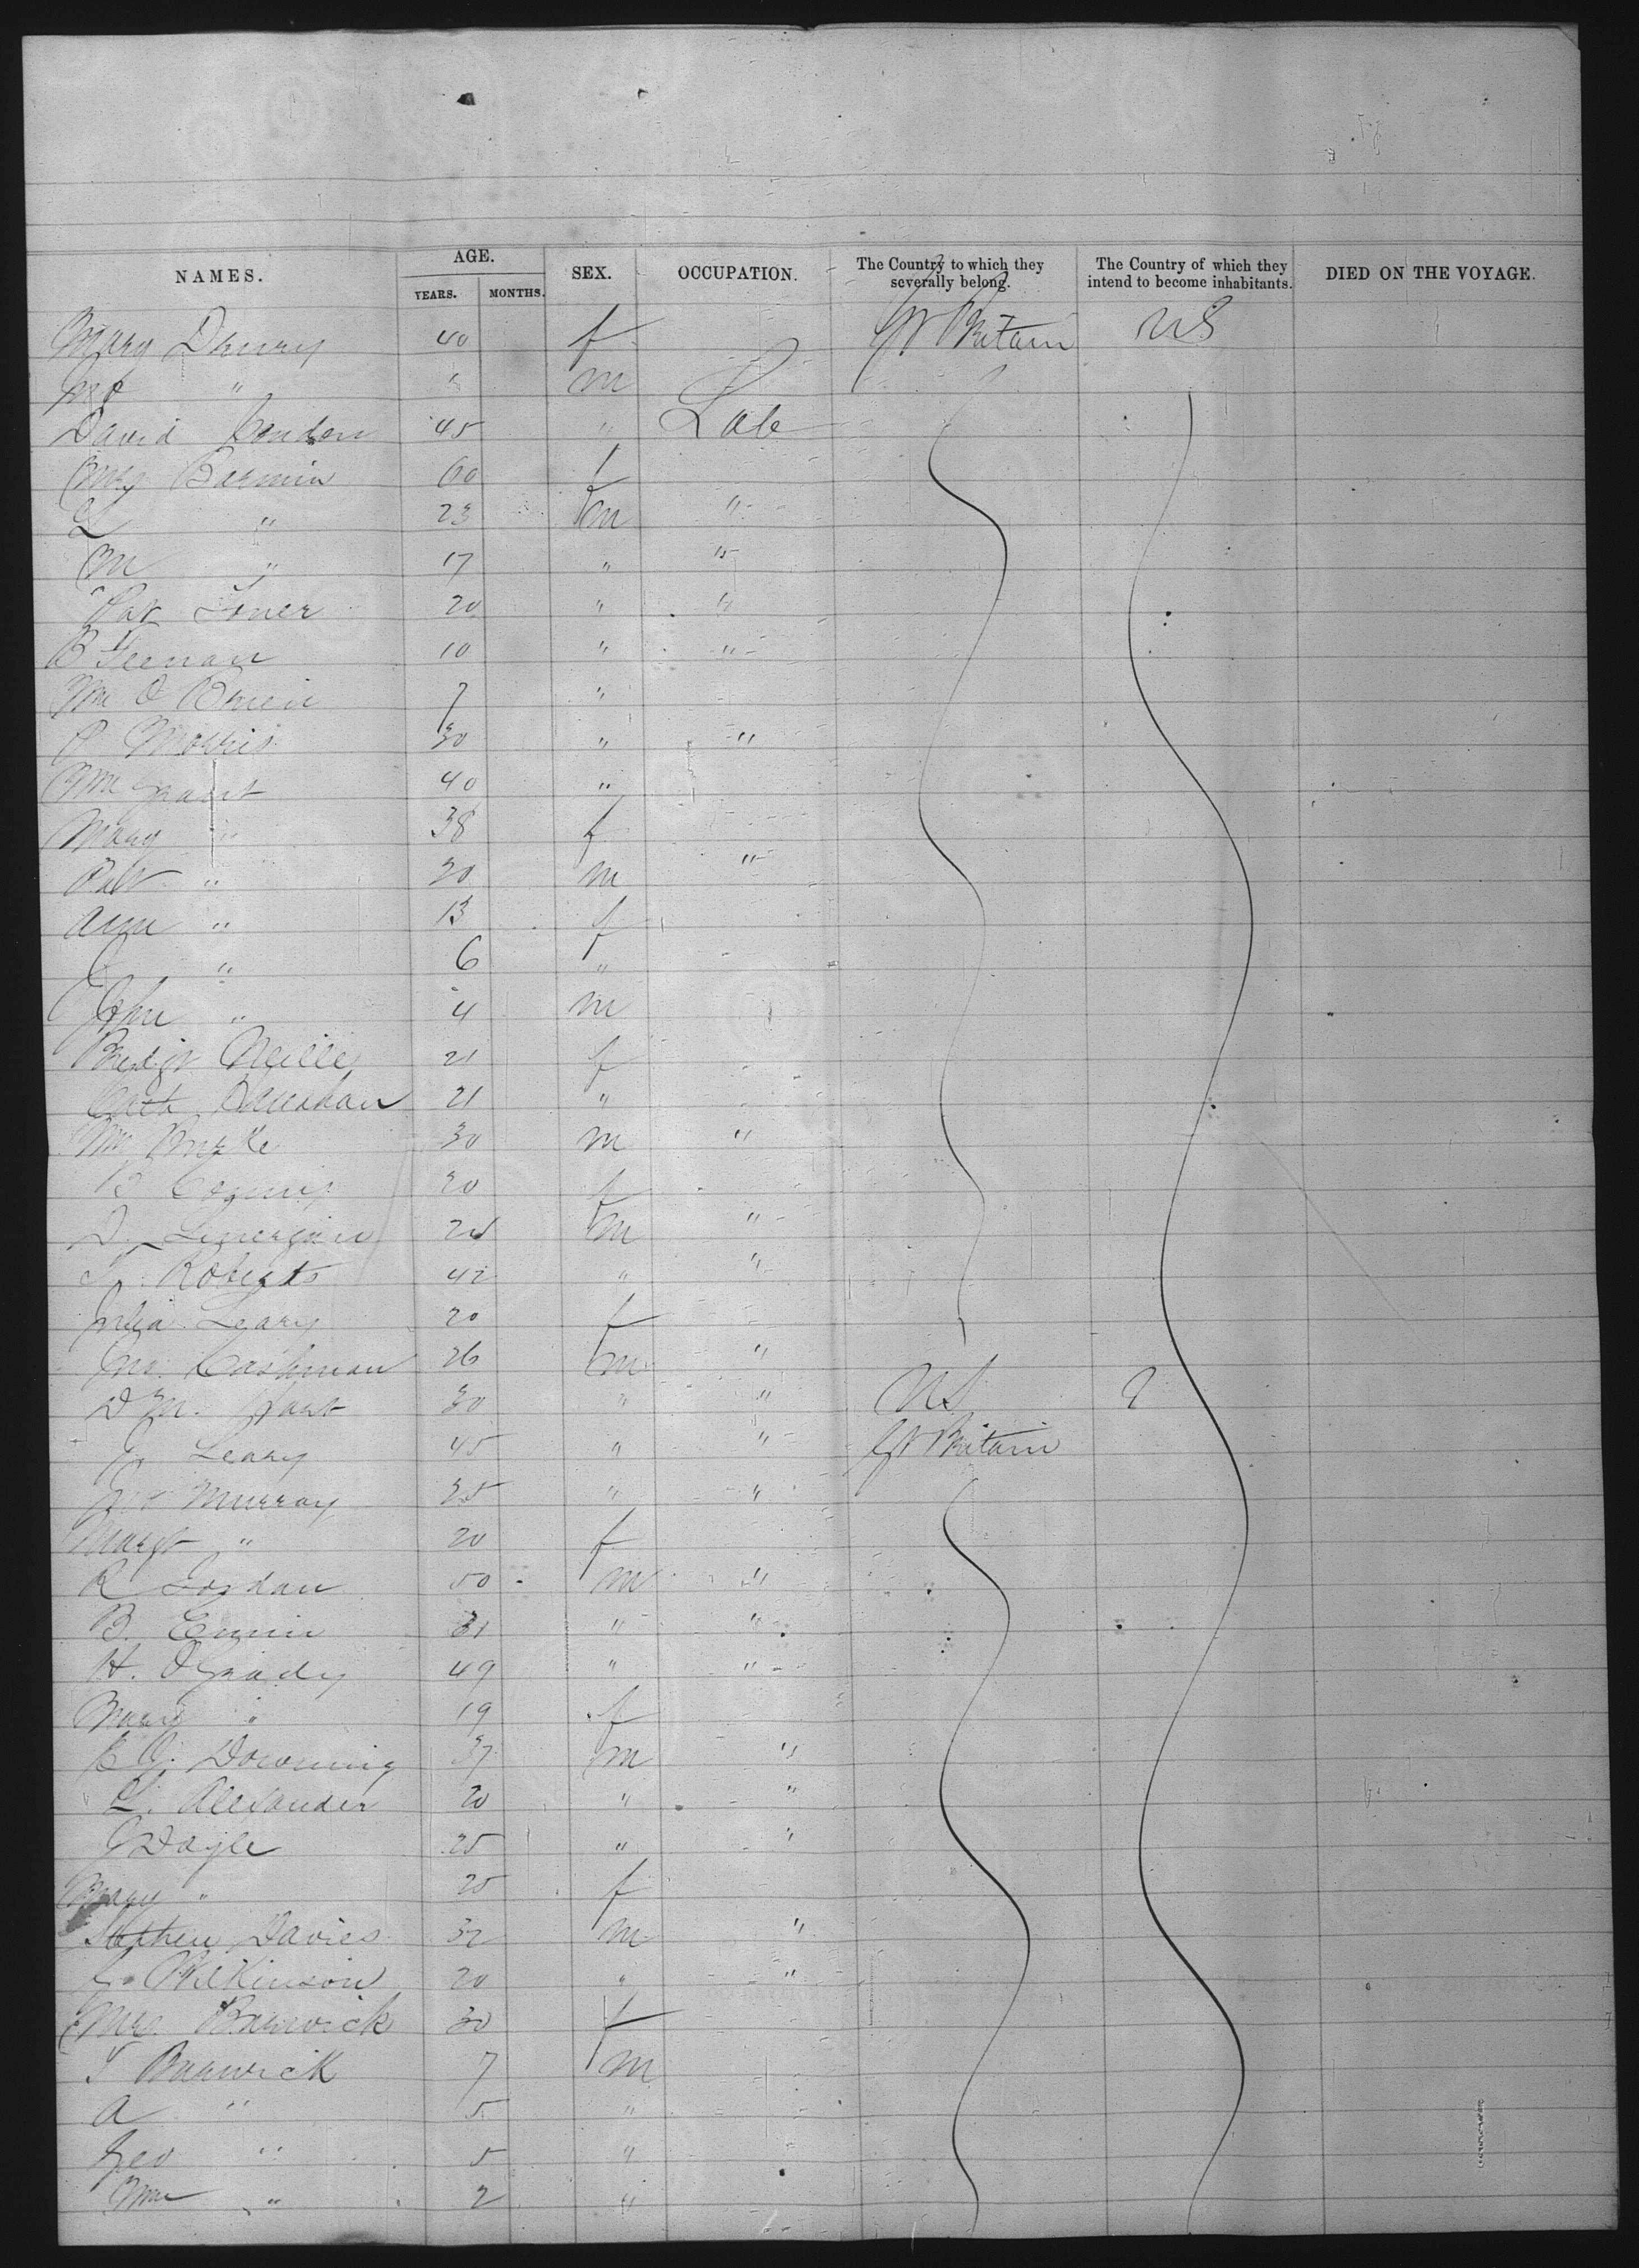 NAMES. AGE. YEARS. MONTHS. SEX. OCCUPATION. The Country to which they severally belong. The Country of which they intend to become inhabitants. DIED ON THE VOYAGE.
Mary Drury 40 f Gt Britain US
" m
David Condon 45 " Lab
Mrs Bermin 60 f
L " 23 m "
M " 17 " "
Pat Toner 20 " "
B Feenan 10 " "
Wm O Brien 7 "
P Morris 30 " "
Wm Grant 40 "
Mary " 38 f
Patk " 20 m "
Ann " 13 f
" 6 "
John " 4 m
Bridgt Neille 21 f
Cath 21 "
Wm Burke 30 m "
B 20 f
D. m "
Roberts 42 " "
Julia Leary 20 f
Cashman 26 m "
D M. Grant 30 " " US
J Leary 45 " " Gt Britain
Murray 35 " "
Margt " 20 f
R Jordan 50 m "
B. 31 " "
H. O Grady 49 " "
Mary " 19 f
E J. Downing 37 m "
L. Alexander 20 " "
J Doyle 25 " "
Mary " 25 f
Stephen Davies 32 m "
Wilkinson 20 " "
Mrs. Barwick 30 f
T Barwick 7 m
A " 5 "
Geo " 5 "
Wm " 2 "